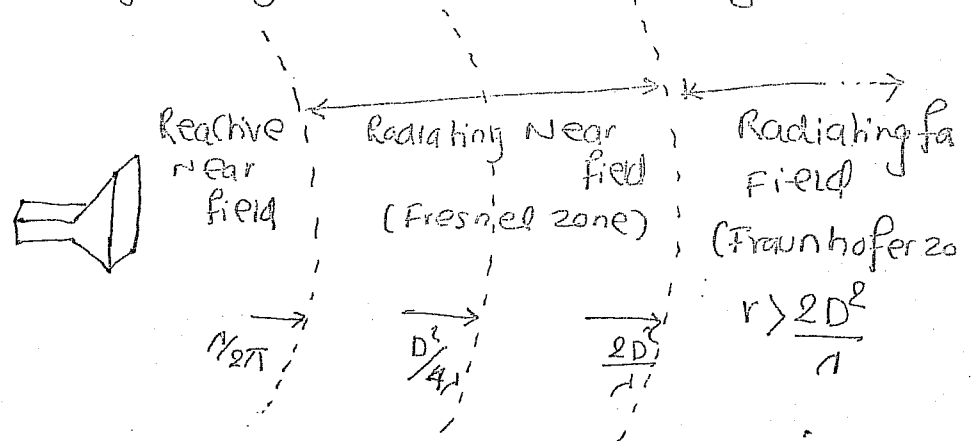 Reactive
Near
field
Radiating Near
field
(Fresnel zone)
Radiating fa
Field
(Fraunhofer zo
r > 2D²/λ
λ/2π
D²/4λ
2D²/λ